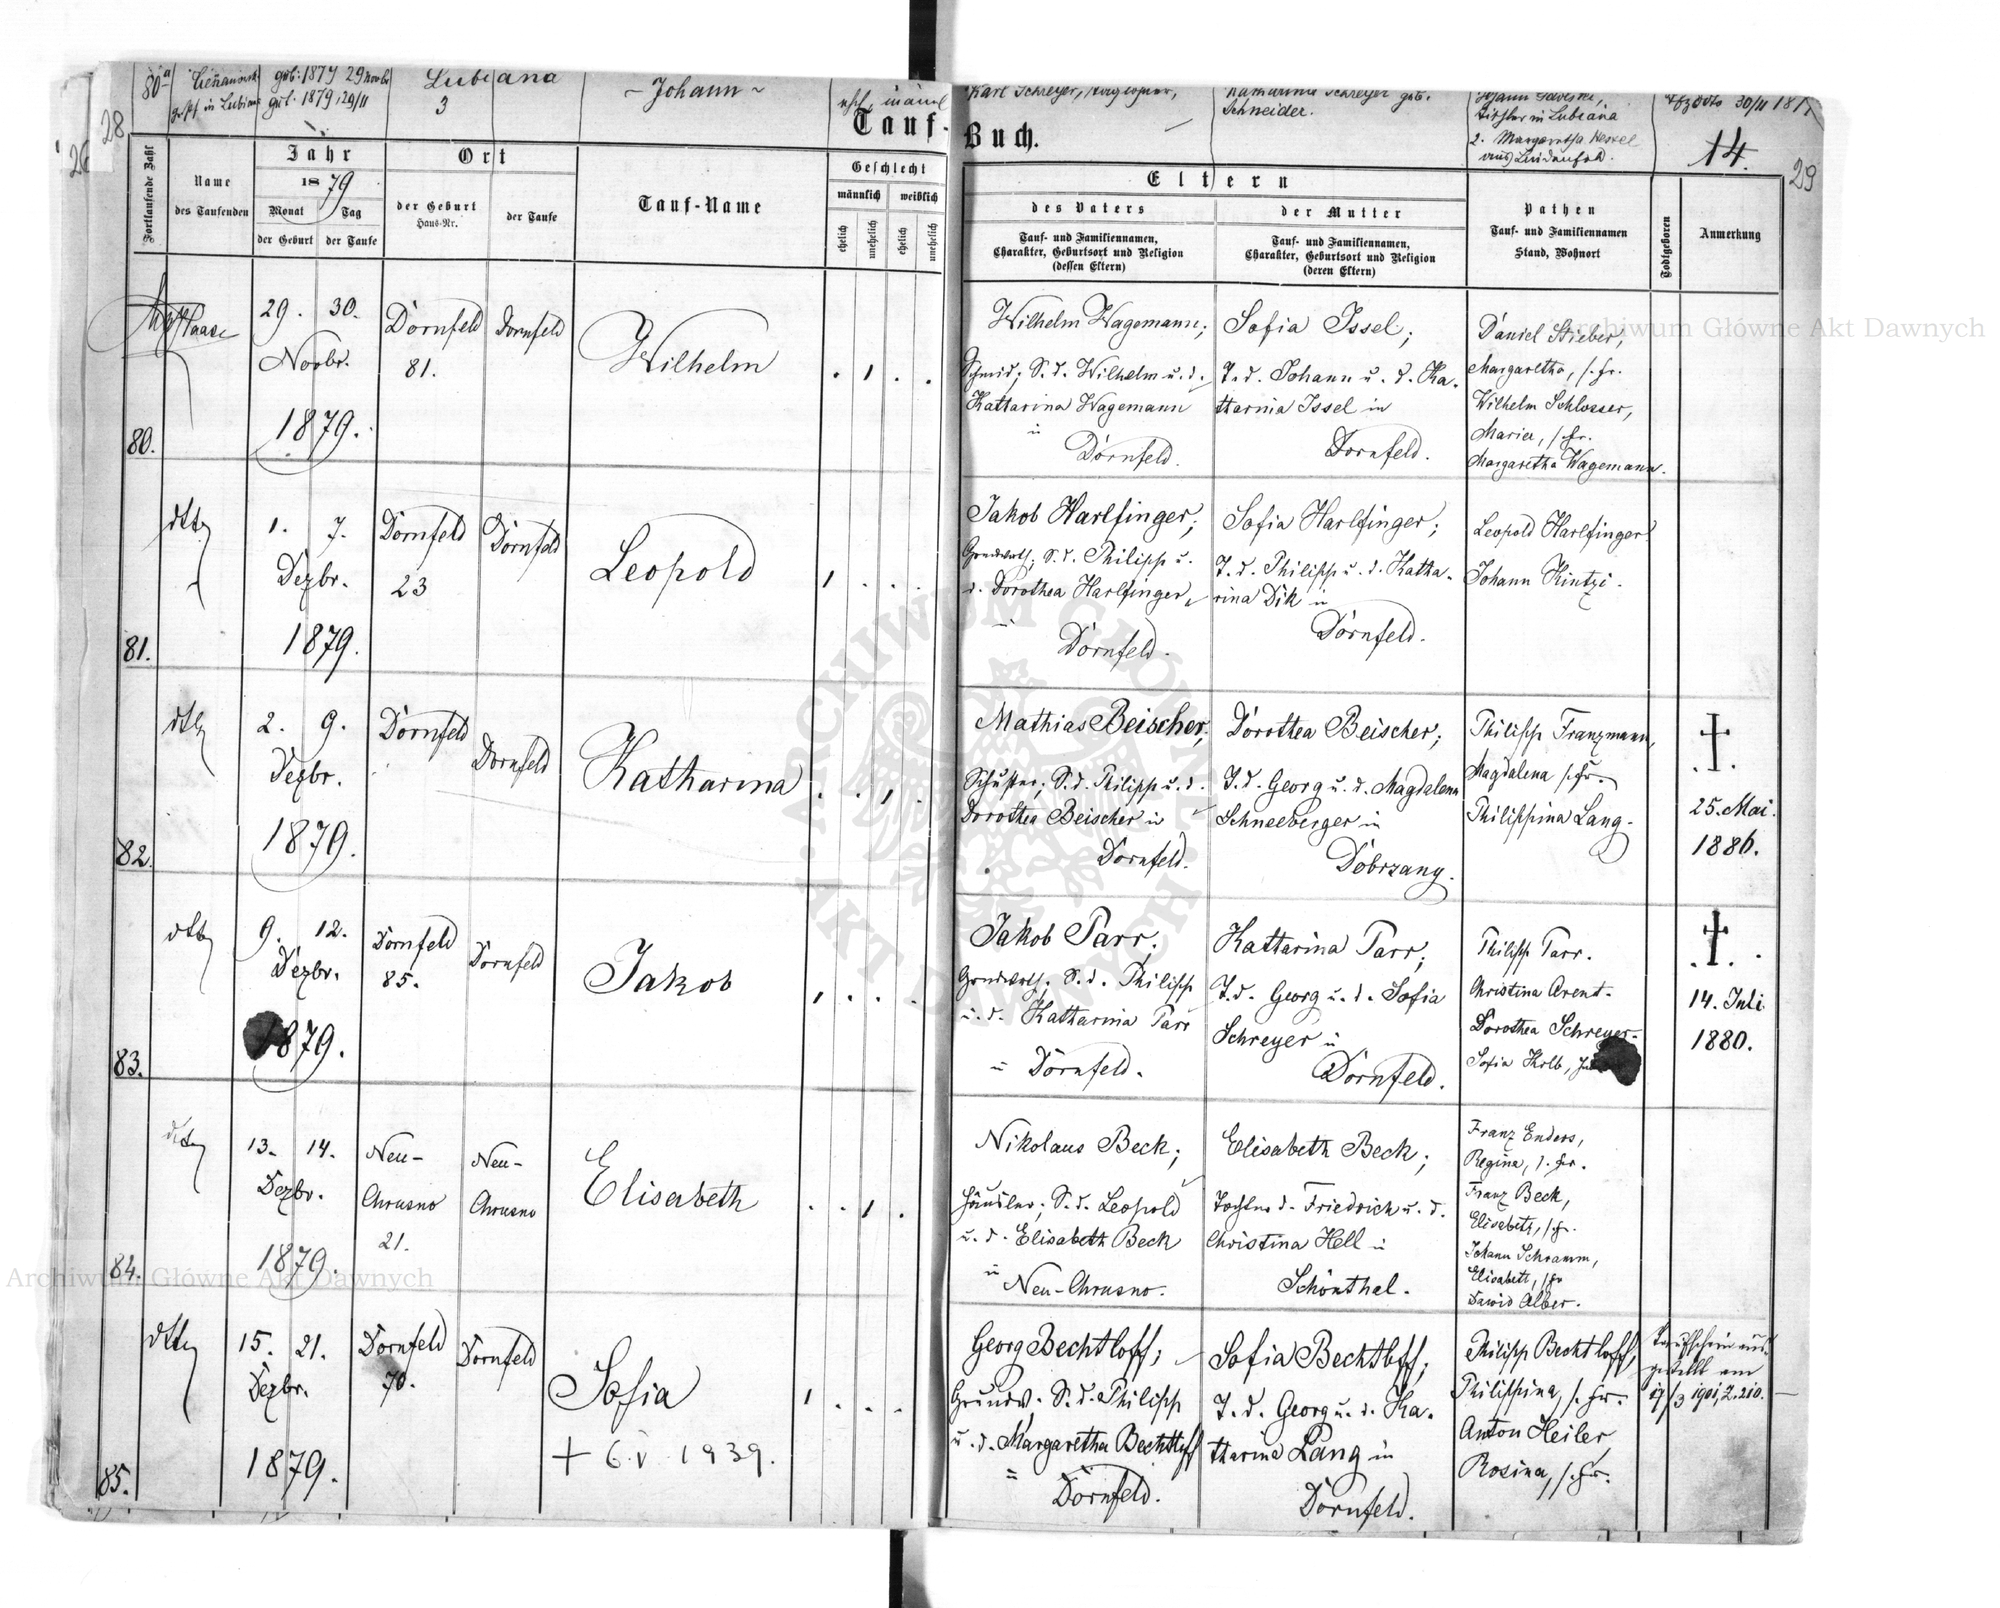 80a
geb: 1879 29 Novbr
get. 1879, 29/11
in Lubiana
Lubiana
3
~ Johann ~
Karl Schreyer, Taglöhner,
Katharina Schreyer geb.
Schneider.
Tischler in Lubiana
2. Margaretha
aus Lindenfeld.
30/11 187
28
26
Tauf-
Buch.
14.
29
Fortlaufende Zahl
Name
des Taufenden
Jahr
1879
Monat
Tag
der Geburt
der Taufe
Ort
der Geburt
Haus-Nr.
der Taufe
Tauf-Name
Geschlecht
männlich
weiblich
ehelich
unehelich
ehelich
unehelich
Eltern
des Vaters
Tauf- und Familiennamen,
Charakter, Geburtsort und Religion
(dessen Eltern)
der Mutter
Tauf- und Familiennamen,
Charakter, Geburtsort und Religion
(deren Eltern)
Pathen
Tauf- und Familiennamen
Stand, Wohnort
Todtgeboren
Anmerkung
80.
29. 30.
Novbr.
1879.
Dornfeld
81.
Dornfeld
Wilhelm
Wilhelm Wagemann;
Schmid; S. d. Wilhelm u. d.
Katharina Wagemann
in
Dornfeld.
Sofia Issel;
T. d. Johann u. d. Ka-
tharina Issel in
Dornfeld.
Daniel Stieber,
Margaretha, s. Fr.
Wilhelm Schlosser,
Maria, s. Fr.
Margaretha Wagemann.
81.
dtto
1. 7.
Dezbr.
1879.
Dornfeld
23
Dornfeld
Leopold
Jakob Harlfinger;
Grundwrth; S. d. Philipp u.
d. Dorothea Harlfinger
in
Dornfeld.
Sofia Harlfinger;
T. d. Philipp u. d. Katha-
rina Dik in
Dornfeld.
Leopold Harlfinger
Johann Kintzi.
82.
dtto
2. 9.
Dezbr.
1879.
Dornfeld
Dornfeld
Katharina
Mathias Beischer;
Schuster; S. d. Philipp u. d.
Dorothea Beischer in
Dornfeld.
Dorothea Beischer;
T. d. Georg u. d. Magdalena
Schneeberger in
Dobrzany.
Philipp Franzmann,
Magdalena s. Fr.
Philippina Lang.
25. Mai
1886.
83.
dtto
9. 12.
Dezbr.
1879.
Dornfeld
85.
Dornfeld
Jakob
Jakob Parr;
Grundwrth; S. d. Philipp
u. d. Katharina Parr
in Dornfeld.
Katharina Parr;
T. d. Georg u. d. Sofia
Schreyer in
Dornfeld.
Philipp Parr.
Christina Arent.
Dorothea Schreyer.
Sofia Kolb,
14. Juli
1880.
84.
dtto
13. 14.
Dezbr.
1879.
Neu-
Chrusno
21.
Neu-
Chrusno
Elisabeth
Nikolaus Beck;
Häusler; S. d. Leopold
u. d. Elisabeth Beck
in
Neu-Chrusno.
Elisabeth Beck;
Tochter d. Friedrich u. d.
Christina Hell in
Schönthal.
Franz Enders,
Regina, s. Fr.
Franz Beck,
Elisabeth, s. Fr.
Johann Schramm,
Elisabeth, s. Fr.
Dawid Alber.
85.
dtto
15. 21.
Dezbr.
1879.
Dornfeld
70.
Dornfeld
Sofia
+ 6. V. 1939.
Georg Bechtloff;
Grundw. S. d. Philipp
u. d. Margaretha Bechtloff
in
Dornfeld.
Sofia Bechtloff;
T. d. Georg u. d. Ka-
tharina Lang in
Dornfeld.
Philipp Bechtloff,
Philippina, s. Fr.
Anton Heiler,
Rosina, s. Fr.
Taufschein aus-
gestellt am
17/3 1901, Z. 210.
Archiwum Główne Akt Dawnych
Archiwum Główne Akt Dawnych
ARCHIWUM GŁÓWNE
AKT DAWNYCH